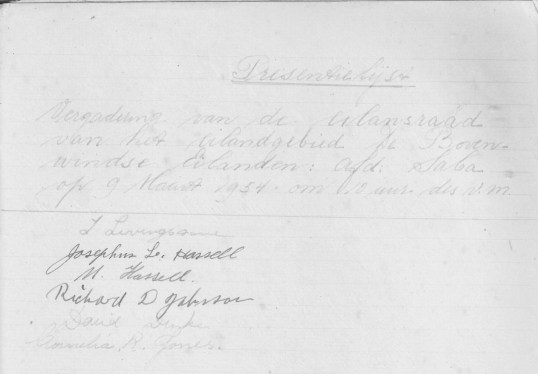 Presentielijst
Vergadering van de eilansraad
van het eilandgebied de Boven-
windse Eilanden: afd: Saba
op 9 Maart 1954 om 10 uur des v.m
L Livingstone
Josephus L. Hassell
M. Hassell.
Richard D Johnson
David
Cornelia R. Jones.